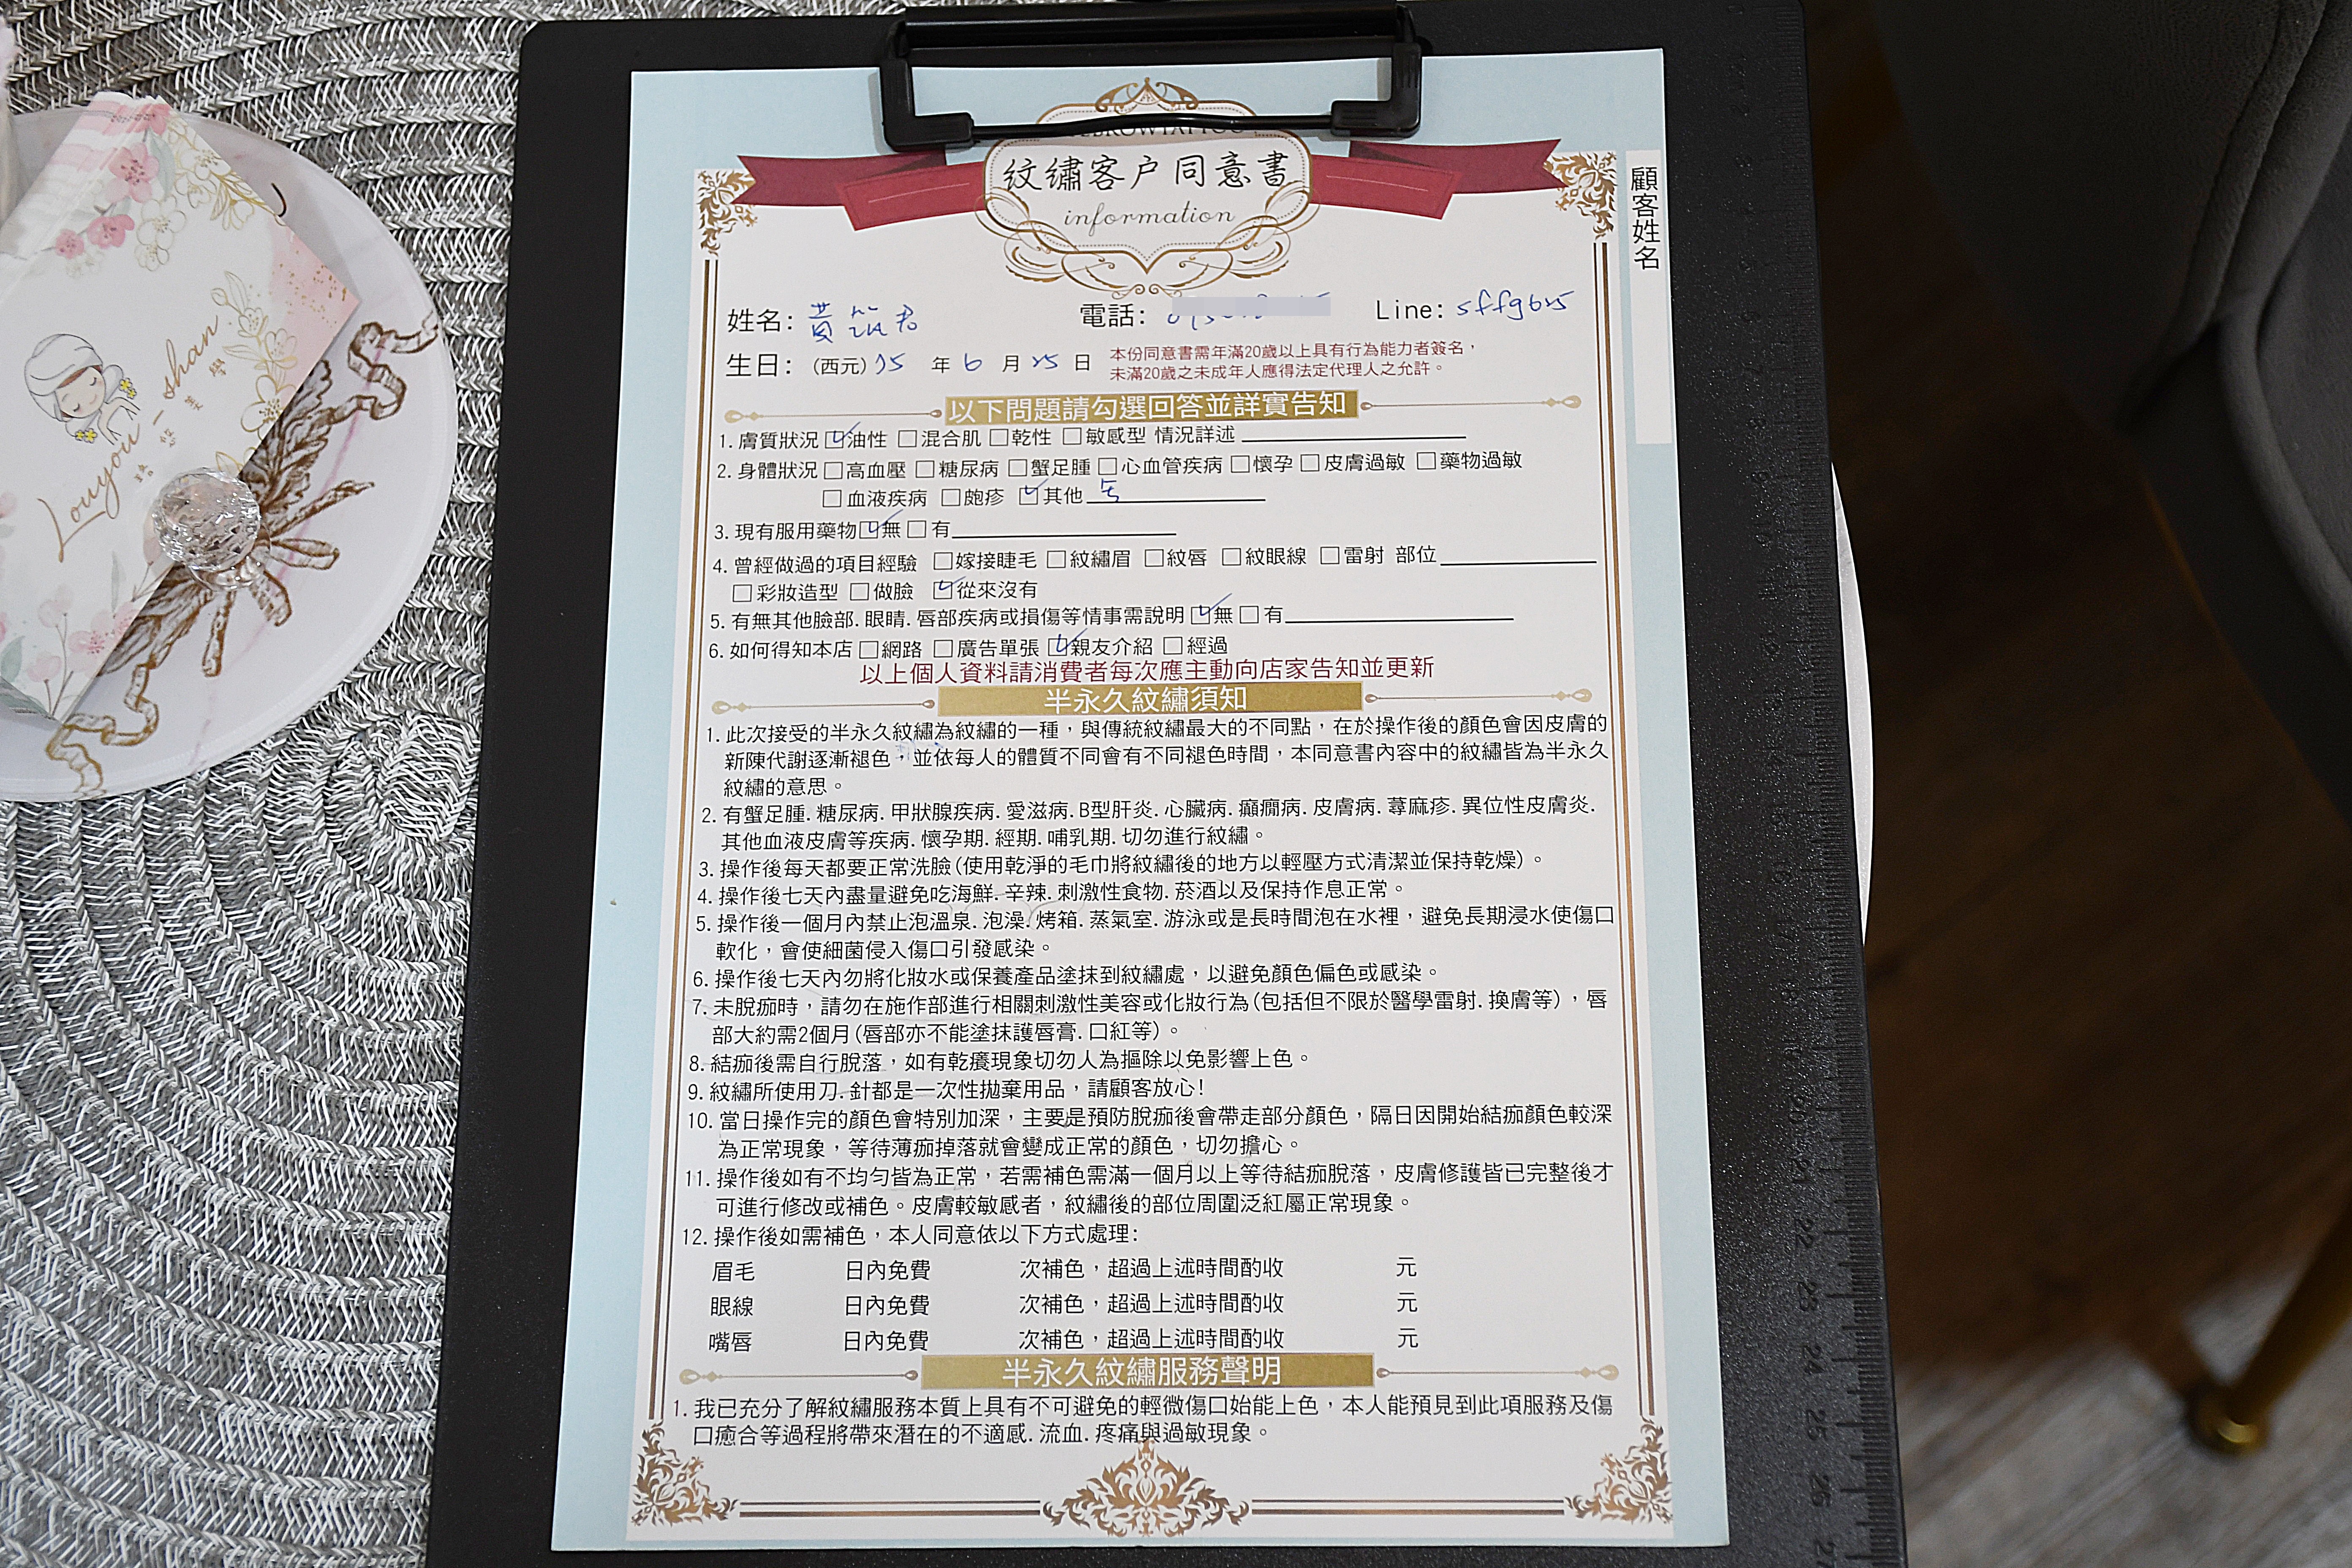 紋繡客户同意書
information
顧客姓名
姓名: 黃筑君 電話: Line: sffg625
生日: (西元) 75 年 6 月 25 日 本份同意書需年滿20歲以上具有行為能力者簽名，
未滿20歲之未成年人應得法定代理人之允許。
以下問題請勾選回答並詳實告知
1. 膚質狀況 ☑油性 □混合肌 □乾性 □敏感型 情況詳述
2. 身體狀況 □高血壓 □糖尿病 □蟹足腫 □心血管疾病 □懷孕 □皮膚過敏 □藥物過敏
□血液疾病 □皰疹 ☑其他 无
3. 現有服用藥物 ☑無 □有
4. 曾經做過的項目經驗 □嫁接睫毛 □紋繡眉 □紋唇 □紋眼線 □雷射 部位
□彩妝造型 □做臉 ☑從來沒有
5. 有無其他臉部. 眼睛. 唇部疾病或損傷等情事需說明 ☑無 □有
6. 如何得知本店 □網路 □廣告單張 ☑親友介紹 □經過
以上個人資料請消費者每次應主動向店家告知並更新
半永久紋繡須知
1. 此次接受的半永久紋繡為紋繡的一種，與傳統紋繡最大的不同點，在於操作後的顏色會因皮膚的
新陳代謝逐漸褪色，並依每人的體質不同會有不同褪色時間，本同意書內容中的紋繡皆為半永久
紋繡的意思。
2. 有蟹足腫. 糖尿病. 甲狀腺疾病. 愛滋病. B型肝炎. 心臟病. 癲癇病. 皮膚病. 蕁麻疹. 異位性皮膚炎.
其他血液皮膚等疾病. 懷孕期. 經期. 哺乳期. 切勿進行紋繡。
3. 操作後每天都要正常洗臉(使用乾淨的毛巾將紋繡後的地方以輕壓方式清潔並保持乾燥)。
4. 操作後七天內盡量避免吃海鮮. 辛辣. 刺激性食物. 菸酒以及保持作息正常。
5. 操作後一個月內禁止泡溫泉. 泡澡. 烤箱. 蒸氣室. 游泳或是長時間泡在水裡，避免長期浸水使傷口
軟化，會使細菌侵入傷口引發感染。
6. 操作後七天內勿將化妝水或保養產品塗抹到紋繡處，以避免顏色偏色或感染。
7. 未脫痂時，請勿在施作部進行相關刺激性美容或化妝行為(包括但不限於醫學雷射. 換膚等)，唇
部大約需2個月(唇部亦不能塗抹護唇膏. 口紅等)。
8. 結痂後需自行脫落，如有乾癢現象切勿人為摳除以免影響上色。
9. 紋繡所使用刀. 針都是一次性拋棄用品，請顧客放心!
10. 當日操作完的顏色會特別加深，主要是預防脫痂後會帶走部分顏色，隔日因開始結痂顏色較深
為正常現象，等待薄痂掉落就會變成正常的顏色，切勿擔心。
11. 操作後如有不均勻皆為正常，若需補色需滿一個月以上等待結痂脫落，皮膚修護皆已完整後才
可進行修改或補色。皮膚較敏感者，紋繡後的部位周圍泛紅屬正常現象。
12. 操作後如需補色，本人同意依以下方式處理:
眉毛 日內免費 次補色，超過上述時間酌收 元
眼線 日內免費 次補色，超過上述時間酌收 元
嘴唇 日內免費 次補色，超過上述時間酌收 元
半永久紋繡服務聲明
1. 我已充分了解紋繡服務本質上具有不可避免的輕微傷口始能上色，本人能預見到此項服務及傷
口癒合等過程將帶來潛在的不適感. 流血. 疼痛與過敏現象。
Louyou-shan
22
23
24
25
26
27